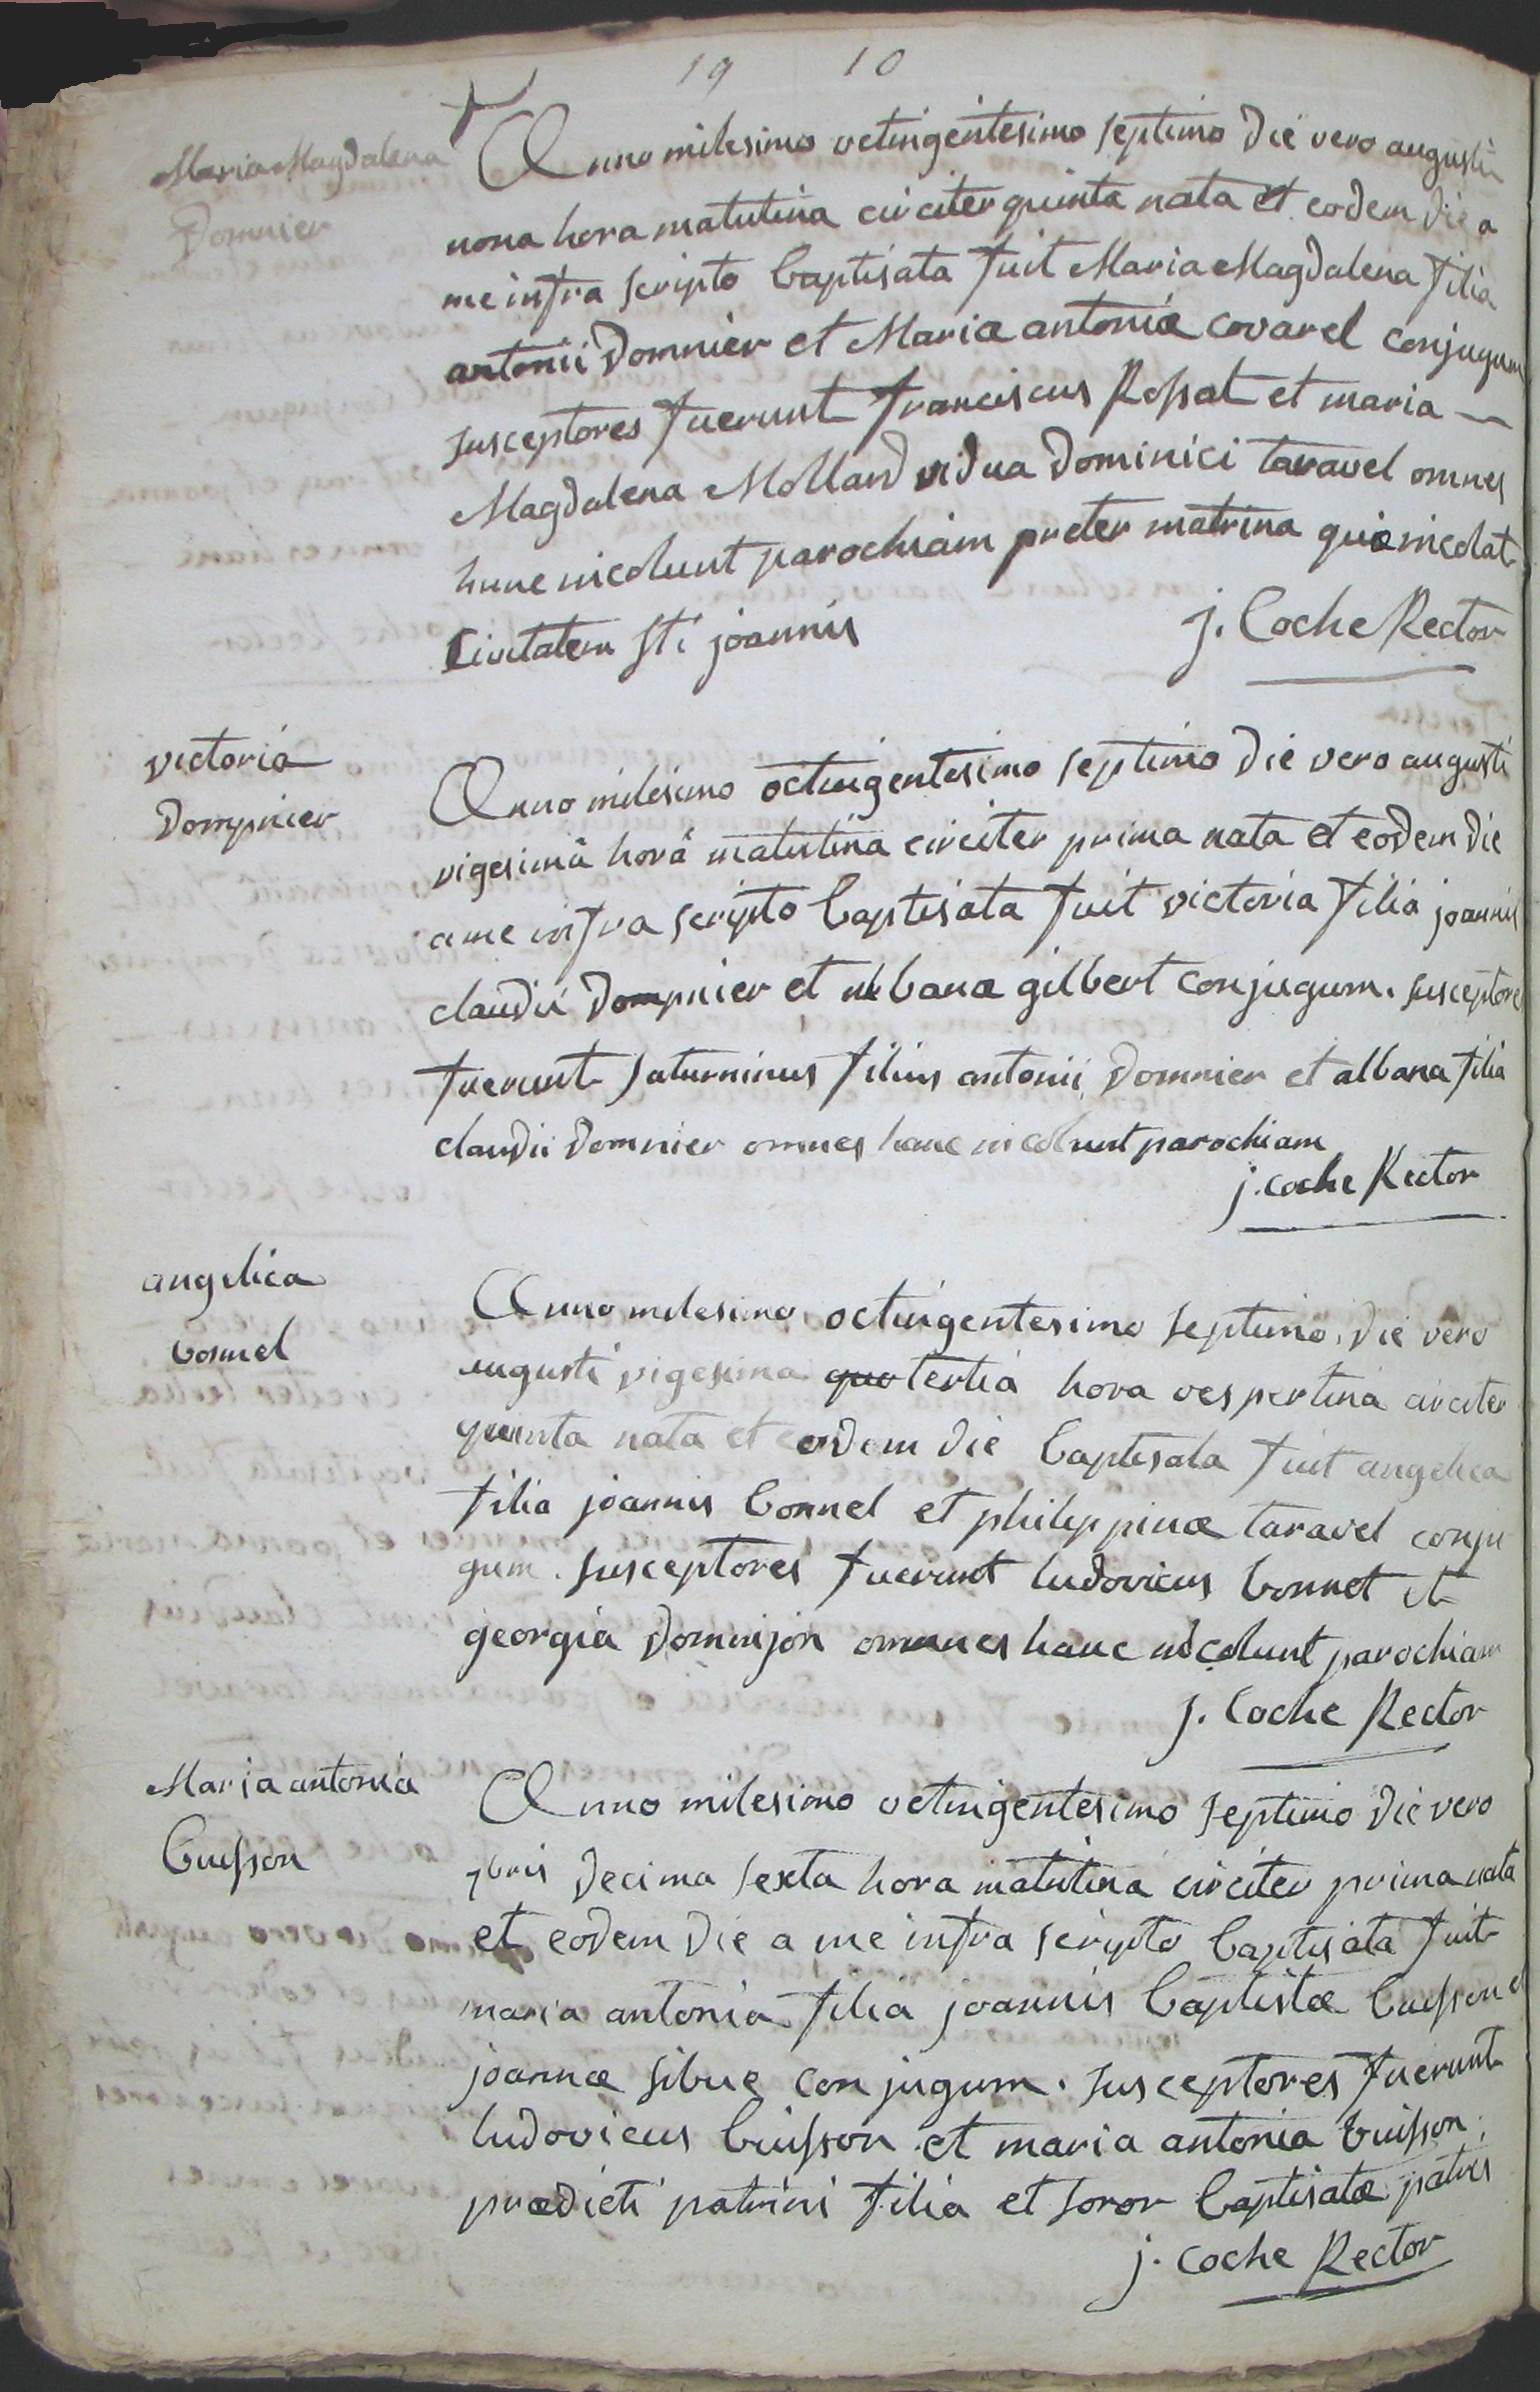 19 10
Maria Magdalena
Domnier
Anno milesimo octingentesimo septimo die vero augusti
nona hora matutina circiter quinta nata et eodem die a
me infra scripto baptisata fuit Maria Magdalena filia
antonii Domnier et Mariæ antoniæ covarel conjugum
susceptores fuerunt franciscus Rossat et maria
Magdalena Molland vidua Dominici taravel omnes
hunc incolunt parochiam preter matrina quia incolat
Civitatem Sti joannis
j. Coche Rector
victoria
Dompnier
Anno milesimo octingentesimo septimo die vero augusti
vigesimâ horâ matutina circiter prima nata et eodem die
a me infra scripto baptisata fuit victoria filia joannis
claudii Dompnier et albanæ gilbert conjugum. susceptores
fuerunt saturninus filius antonii Domnier et albana filia
claudii Domnier omnes hanc incolunt parochiam
j. coche Rector
angelica
bonnel
Anno milesimo octingentesimo septimo die vero
augusti vigesima tertia hora vespertina circiter
quinta nata et eodem die baptisata fuit angelica
filia joannis bonnel et philippinæ taravel conju
gum. susceptores fuerunt ludovicus bonnet et
georgia Domnijon omnes hanc incolunt parochiam
j. Coche Rector
Maria antonia
buisson
Anno milesimo octingentesimo septimo die vero
7bris decima sexta hora matutina circiter prima nata
et eodem die a me infra scripto baptisata fuit
maria antonia filia joannis baptistæ buisson et
joannæ sibue conjugum. susceptores fuerunt
ludovicus buisson et maria antonia buisson,
prædicti patrini filia et soror baptisatæ patris
j. coche Rector